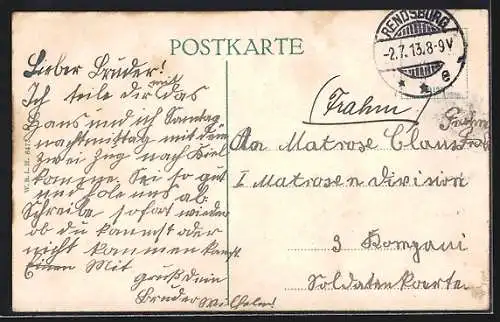 POSTKARTE
RENDSBURG
-2.7.13.8-9V
e
Lieber Bruder!
Ich teile dir mit das
Hans und ich Sonntag
nachmittag mit dem
zwei Zug nach Kiel
komme. Sei so gut
und hole uns ab.
Schreibe sofort wieder
ob du kannst oder
nicht kommen kannst.
Einen Mit
gruß Dein
Bruder Wilhelm!
(Frahm)
An Matrose Claus
I Matrosen Division
3 Kompani
Soldatenkarte
W. B. L. H.